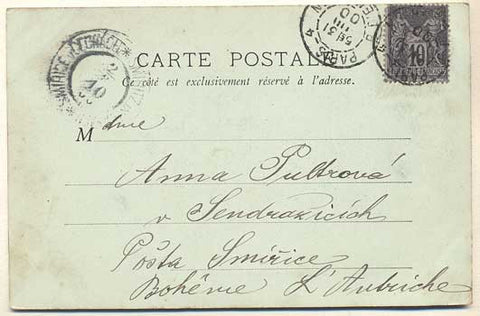 CARTE POSTALE
Ce côté est exclusivement réservé à l'adresse.
PARIS 4
5E 31
00
10
10
Mdme
Anna Pultrová
v Sendražicích
Pošta Smiřice
Bohême L'Autriche